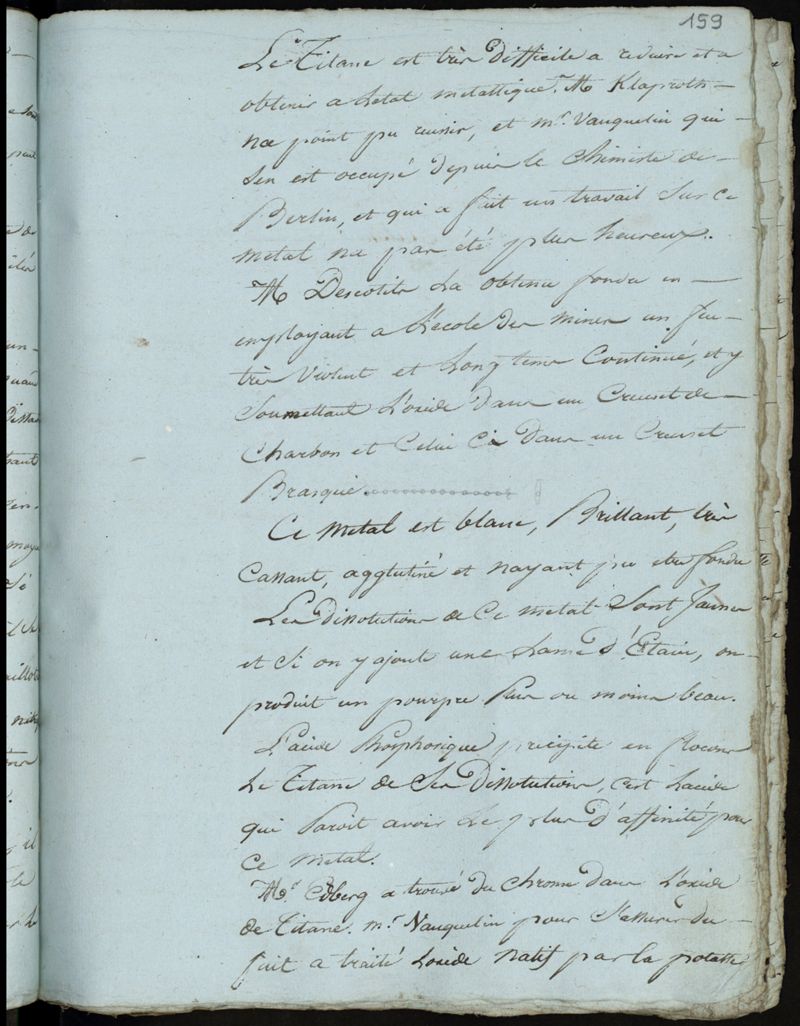 159
Le Titane est très difficile a reduire et a
obtenir a letat metallique. Mr Klaproth
na point pu reussir, et mr. Vauquelin qui
sen est occupé depuis le chimiste de
Berlin, et qui a fait un travail sur ce
metal na pas été plus heureux.
Mr Descotils la obtenu fondu en
employant a l'ecole des mines un feu
très violent et longtems continué, et y
soumettant l'oxide dans un creuset de
charbon et celui ci dans un creuset
Brasqué.
Ce metal est blanc, Brillant, très
cassant, agglutiné et nayant pu etre fondu
Les dissolutions de ce metal sont jaunes
et si on y ajoute une lame d'Etain, on
produit un pourpre plus ou moins beau.
L'acide Phosphorique precipite en flocons
le Titane de ses dissolutions, c'est lacide
qui Paroit avoir le plus d'affinité pour
ce metal.
Mr. Ekberg a trouvé du chrome dans l'oxide
de Titane. mr. Vauquelin pour s'assurer du
fait a traité loxide natif par la potasse